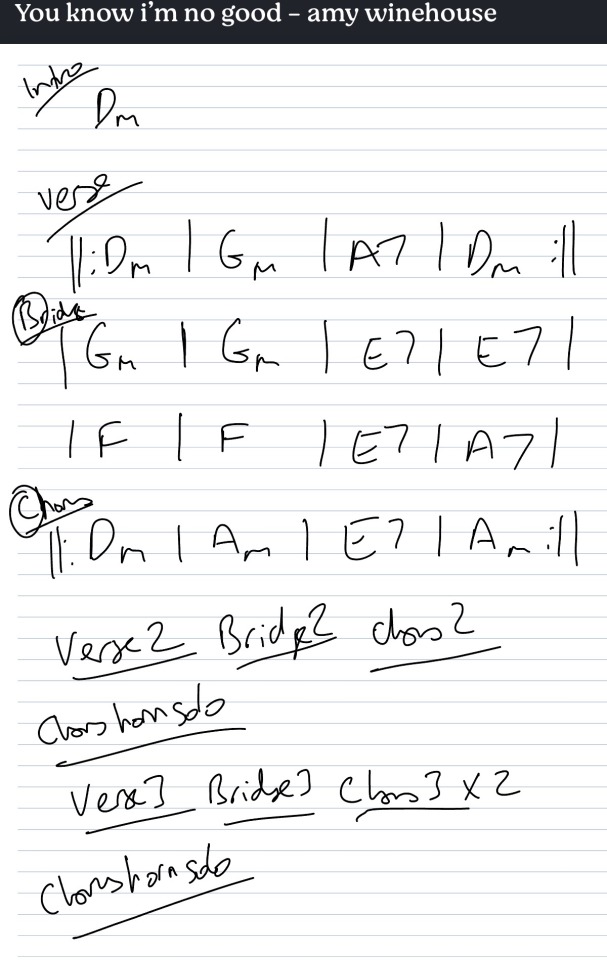 You know i'm no good – amy winehouse
Intro
Dm
Verse
||: Dm | Gm | A7 | Dm :||
Bridge
| Gm | Gm | E7 | E7 |
| F | F | E7 | A7 |
Chorus
||: Dm | Am | E7 | Am :||
Verse 2 Bridge 2 chorus 2
Chorus horn solo
Verse 3 Bridge 3 Chorus 3 x 2
Chorus horn solo